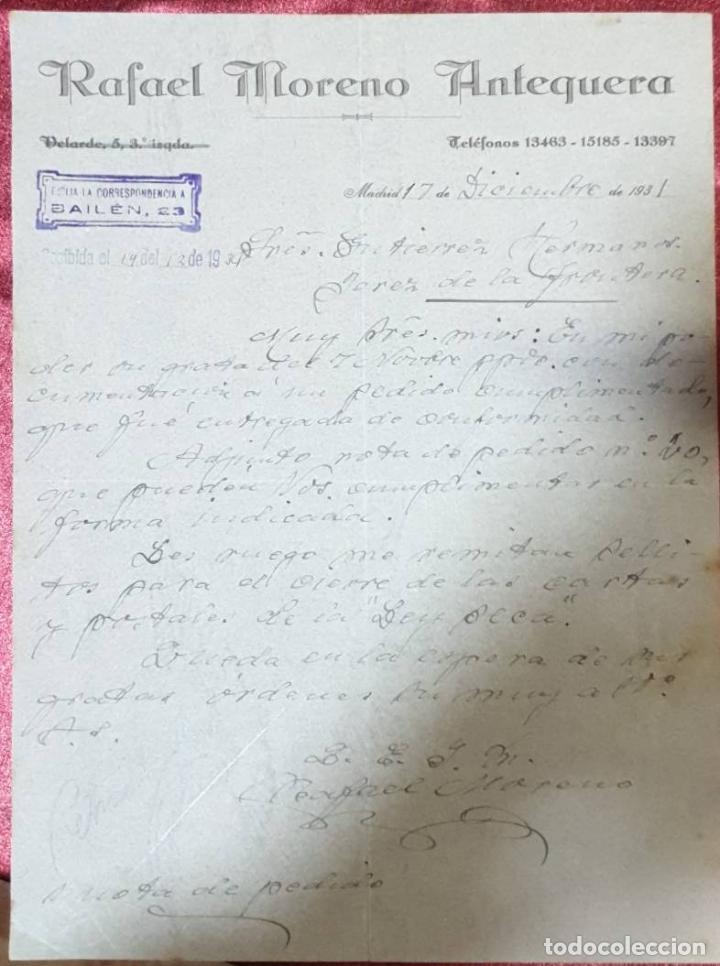 Rafael Moreno Antequera
Velarde, 5, 3.º izqda.
Teléfonos 13463 - 15185 - 13397
DIRIJA LA CORRESPONDENCIA A
BAILÉN, 23
Madrid 17 de Diciembre de 1931
Recibida el 19 del 12 de 1931
Sres. Gutierrez Hermanos.
Jerez de la Frontera.
Muy Sres. mios: En mi po-
der su grata del 7 Novbre ppdo. con do-
cumentación á un pedido cumplimentado,
que fué entregada de conformidad.
Adjunto nota de pedido n.º 20,
que pueden Vds. cumplimentar en la
forma indicada.
Les ruego me remitan selli-
tos para el cierre de las cartas
y postales de la "Ley seca".
Queda en la espera de sus
gratas órdenes su muy aff.º
S. S.
Q. E. S. M.
Rafael Moreno
1 nota de pedido
todocoleccion